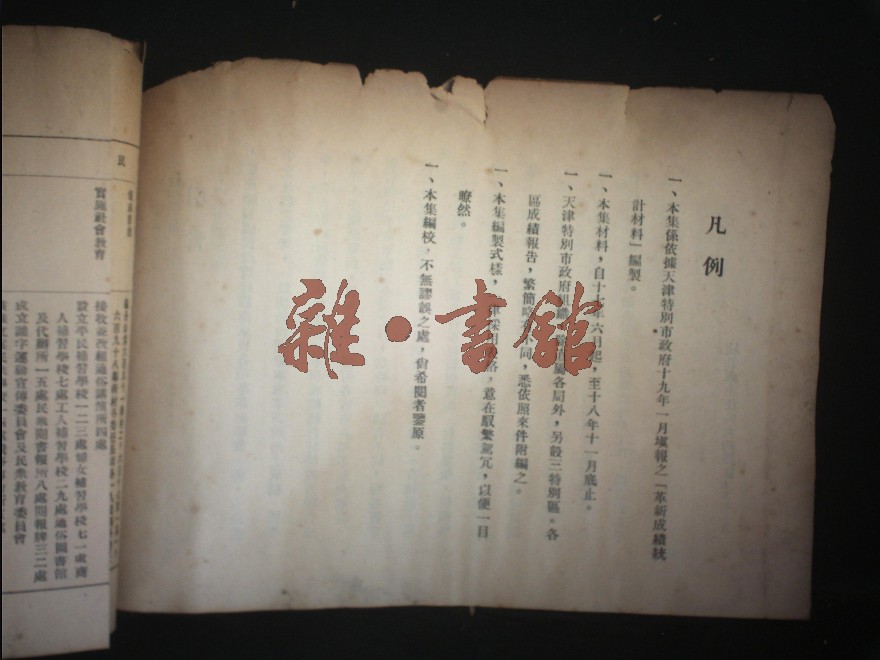 凡例
一、本集係依據天津特別市政府十九年一月塡報之「革新成績統
計材料」編製。
一、本集材料，自十七年六月起，至十八年十一月底止。
一、天津特別市政府組織，除直屬各局外，另設三特別區。各
區成績報告，繁簡不同，悉依照來件附編之。
一、本集編製式樣，採用，意在馭繁冗，以便一目
瞭然。
一、本集編校，不無謬誤之處，尙希閱者鑒原。
雜·書館
民
實施社會教育
接收並改組通俗講演所四處
設立平民補習學校一二三處婦女補習學校七一處商
人補習學校七處工人補習學校二九處通俗圖書館
及代辦所一五處民衆閱書報所八處閱報牌三二處
成立識字運動宣傳委員會及民衆教育委員會